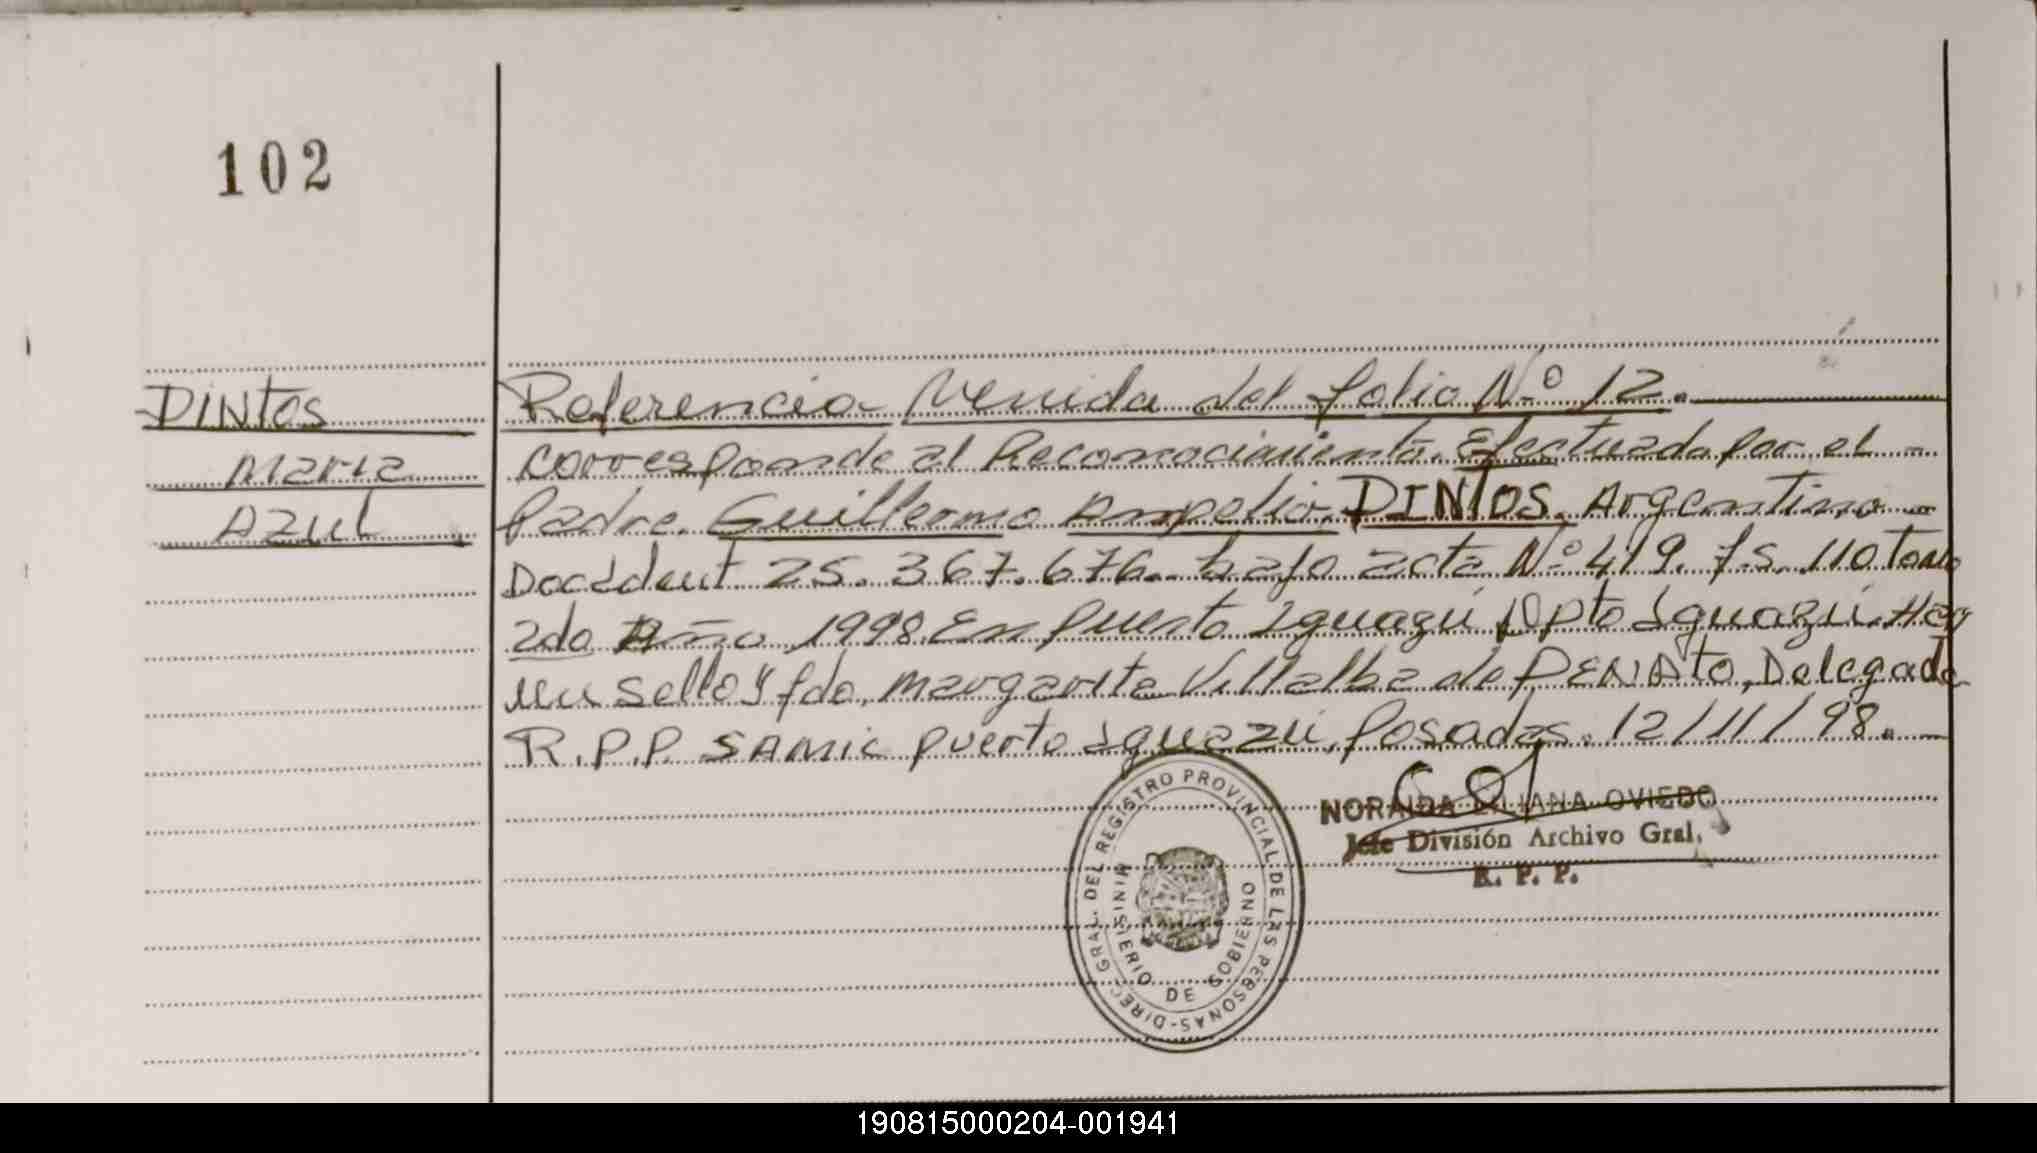 102
DINtos
Maria
Azul
Referencia Venida del folio Nº 12.
Corresponde al Reconocimiento. Efectuado por el
Padre. Guillermo Ampelio. DINTOS. Argentino
Doc Ident 25.367.676. bajo acta Nº 419. fs. 110 Tomo
2do Año 1998. En Puerto Iguazú Dpto Iguazú. Hay
un sello y fdo. Margarita Villalba de PENATO, Delegada
R.P.P. SAMIC Puerto Iguazú, Posadas. 12/11/98.
NORAIDA LILIANA OVIEDO
Jefe División Archivo Gral.
R. P. P.
DIREC. GRAL. DEL REGISTRO PROVINCIAL DE LAS PERSONAS-
MINISTERIO DE GOBIERNO
190815000204-001941